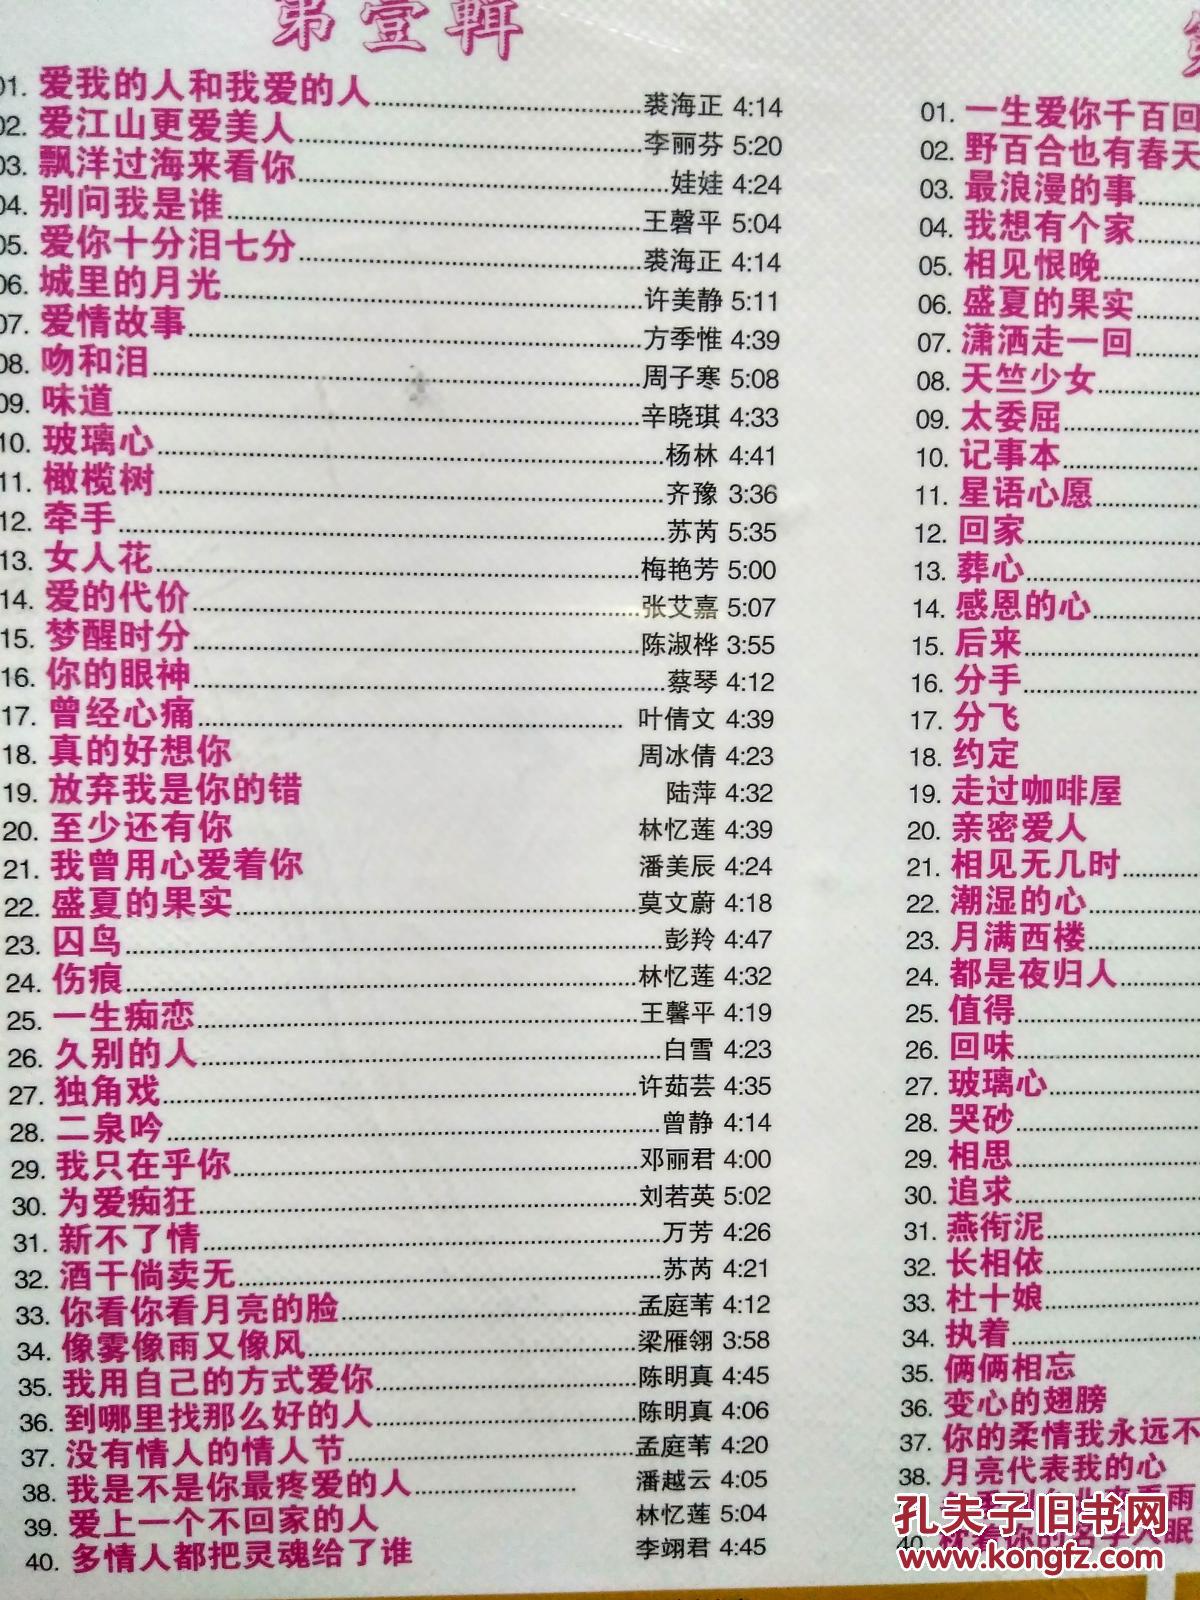 第壹輯
01. 爱我的人和我爱的人 裘海正 4:14
02. 爱江山更爱美人 李丽芬 5:20
03. 飘洋过海来看你 娃娃 4:24
04. 别问我是谁 王馨平 5:04
05. 爱你十分泪七分 裘海正 4:14
06. 城里的月光 许美静 5:11
07. 爱情故事 方季惟 4:39
08. 吻和泪 周子寒 5:08
09. 味道 辛晓琪 4:33
10. 玻璃心 杨林 4:41
11. 橄榄树 齐豫 3:36
12. 牵手 苏芮 5:35
13. 女人花 梅艳芳 5:00
14. 爱的代价 张艾嘉 5:07
15. 梦醒时分 陈淑桦 3:55
16. 你的眼神 蔡琴 4:12
17. 曾经心痛 叶倩文 4:39
18. 真的好想你 周冰倩 4:23
19. 放弃我是你的错 陆萍 4:32
20. 至少还有你 林忆莲 4:39
21. 我曾用心爱着你 潘美辰 4:24
22. 盛夏的果实 莫文蔚 4:18
23. 囚鸟 彭羚 4:47
24. 伤痕 林忆莲 4:32
25. 一生痴恋 王馨平 4:19
26. 久别的人 白雪 4:23
27. 独角戏 许茹芸 4:35
28. 二泉吟 曾静 4:14
29. 我只在乎你 邓丽君 4:00
30. 为爱痴狂 刘若英 5:02
31. 新不了情 万芳 4:26
32. 酒干倘卖无 苏芮 4:21
33. 你看你看月亮的脸 孟庭苇 4:12
34. 像雾像雨又像风 梁雁翎 3:58
35. 我用自己的方式爱你 陈明真 4:45
36. 到哪里找那么好的人 陈明真 4:06
37. 没有情人的情人节 孟庭苇 4:20
38. 我是不是你最疼爱的人 潘越云 4:05
39. 爱上一个不回家的人 林忆莲 5:04
40. 多情人都把灵魂给了谁 李翊君 4:45
01. 一生爱你千百回
02. 野百合也有春天
03. 最浪漫的事
04. 我想有个家
05. 相见恨晚
06. 盛夏的果实
07. 潇洒走一回
08. 天竺少女
09. 太委屈
10. 记事本
11. 星语心愿
12. 回家
13. 葬心
14. 感恩的心
15. 后来
16. 分手
17. 分飞
18. 约定
19. 走过咖啡屋
20. 亲密爱人
21. 相见无几时
22. 潮湿的心
23. 月满西楼
24. 都是夜归人
25. 值得
26. 回味
27. 玻璃心
28. 哭砂
29. 相思
30. 追求
31. 燕衔泥
32. 长相依
33. 杜十娘
34. 执着
35. 俩俩相忘
36. 变心的翅膀
37. 你的柔情我永远不
38. 月亮代表我的心
雨
40. 眠
孔夫子旧书网
www.kongfz.com